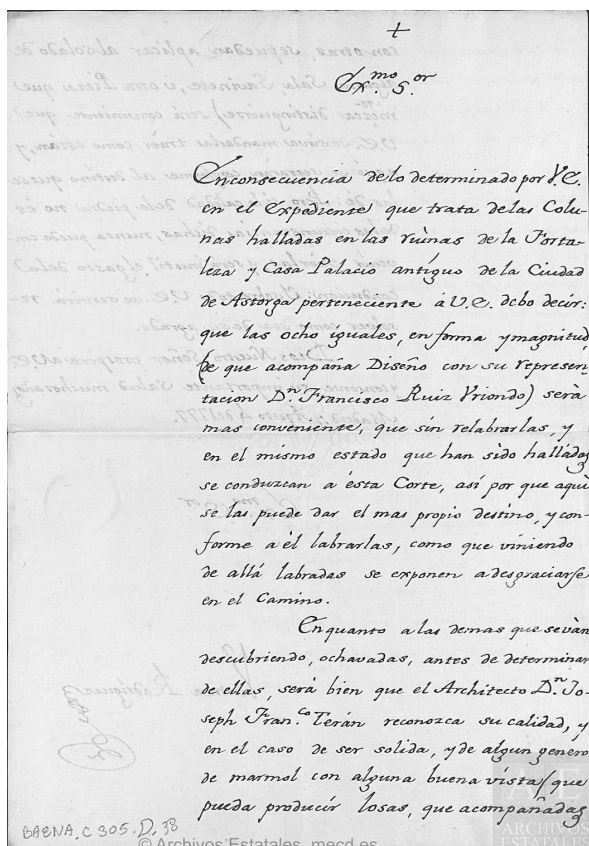 +
Ex.mo S.or
En consecuencia de lo determinado por V.E.
en el Expediente que trata de las Colu-
nas halladas en las ruìnas de la Forta-
leza y Casa Palacio antíguo de la Ciudad
de Astorga perteneciente à V.E. debo decir:
que las ocho iguales, en forma y magnitud
(de que acompaña Diseño con su represen-
tacion D.n Francisco Ruiz Vriondo) serà
mas conveniente, que sin relabrarlas, y
en el mismo estado que han sido halladas
se conduzcan à ésta Corte, asi por que aquì
se las puede dar el mas propio destino, y con-
forme a èl labrarlas, como que viniendo
de allà labradas se exponen a desgraciarse
en el Camino.
En quanto a las demas que se vàn
descubriendo, ochavadas, antes de determinar
de ellas, serà bien que el Architecto D.n Jo-
seph Fran.co Terán reconozca su calidad, y
en el caso de ser solida, y de algun genero
de marmol con alguna buena vista (que
pueda producir losas, que acompañadas
BAENA, C 305. D. 38
© Archivos Estatales, mecd.es
ARCHIVOS
ESTATALES